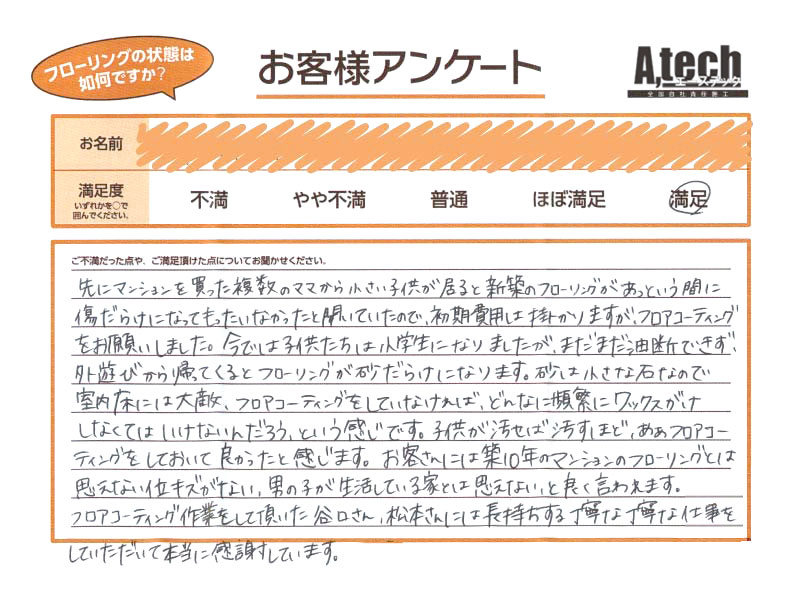 フローリングの状態は
如何ですか?
お客様アンケート
A,tech
エーステック
全国自社責任施工
お名前
満足度
いずれかを○で
囲んでください。
不満 やや不満 普通 ほぼ満足 満足
ご不満だった点や、ご満足頂けた点についてお聞かせください。
先にマンションを買った複数のママから小さい子供が居ると新築のフローリングがあっという間に
傷だらけになってもったいなかったと聞いていたので、初期費用は掛かりますが、フロアコーティング
をお願いしました。今では子供たちは小学生になりましたが、まだまだ油断できず、
外遊びから帰ってくるとフローリングが砂だらけになります。砂は小さな石なので
室内床には大敵、フロアコーティングをしていなければ、どんなに頻繁にワックスがけ
しなくてはいけないんだろう、という感じです。子供が汚せば汚すほど、ああフロアコー
ティングをしておいて良かったと感じます。お客さんには築10年のマンションのフローリングとは
思えない位キズがない、男の子が生活している家とは思えない、と良く言われます。
フロアコーティング作業をして頂いた谷口さん、松本さんには長持ちする丁寧な丁寧な仕事を
していただいて本当に感謝しています。